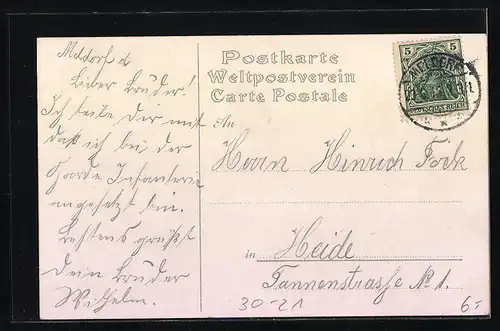 Meldorf d
Lieber Bruder!
Ich teile Dir mit
daß ich bei der
Garde Infanterie
angesetzt bin.
Bestens grüßt
Dein Bruder
Wilhelm.
Postkarte
Weltpostverein
Carte Postale
An
Herrn Hinrich Fock
in Heide
Tannenstrasse No 1.
30-21
6.-
5 5